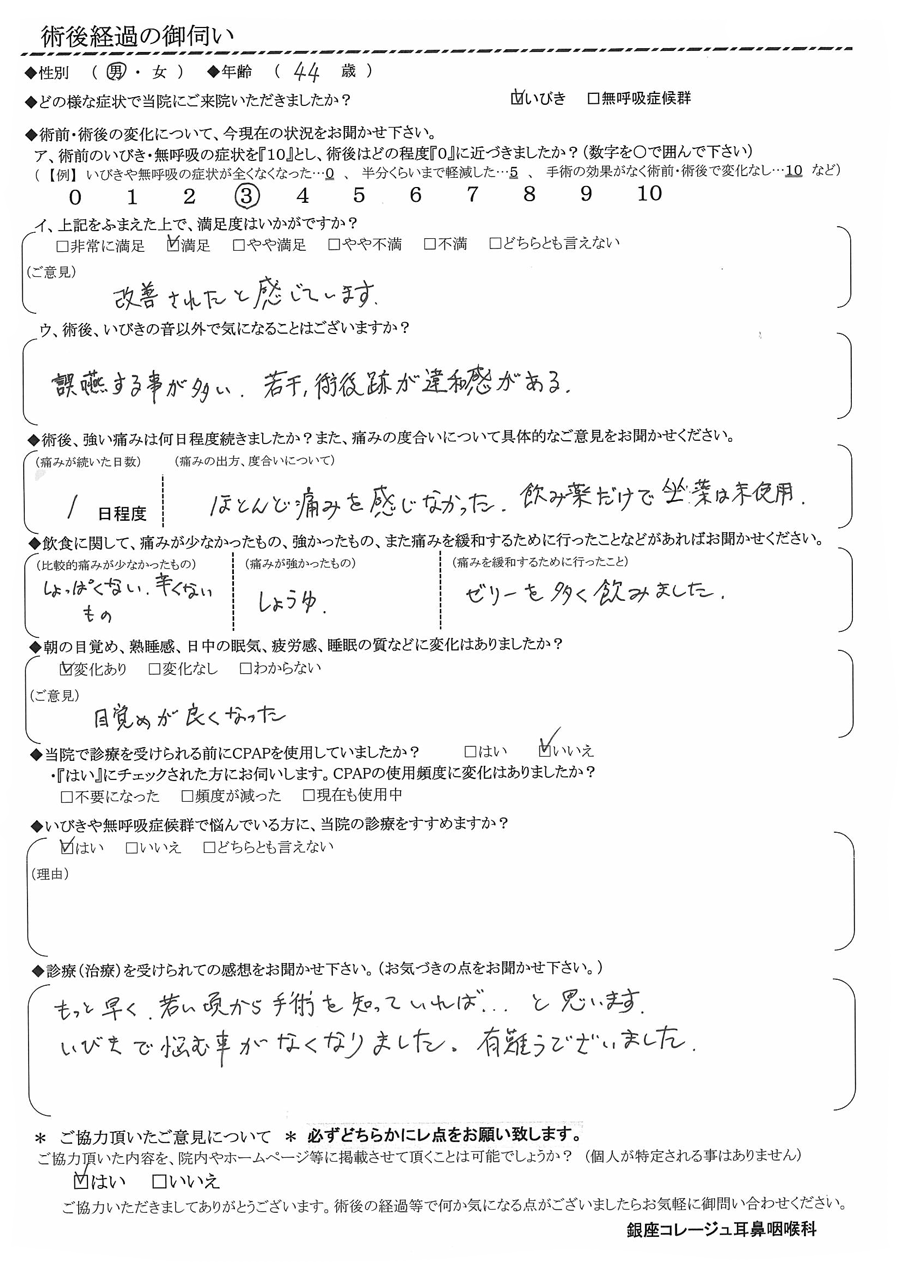 術後経過の御伺い
◆性別 （ 男 ・ 女 ） ◆年齢 （ 44 歳 ）
◆どの様な症状で当院にご来院いただきましたか？ ☑いびき □無呼吸症候群
◆術前・術後の変化について、今現在の状況をお聞かせ下さい。
ア、術前のいびき・無呼吸の症状を『10』とし、術後はどの程度『0』に近づきましたか？（数字を○で囲んで下さい）
（ 【例】 いびきや無呼吸の症状が全くなくなった…0 、 半分くらいまで軽減した…5 、 手術の効果がなく術前・術後で変化なし…10 など）
0 1 2 ③ 4 5 6 7 8 9 10
イ、上記をふまえた上で、満足度はいかがですか？
□非常に満足 ☑満足 □やや満足 □やや不満 □不満 □どちらとも言えない
（ご意見）
改善されたと感じています.
ウ、術後、いびきの音以外で気になることはございますか？
誤嚥する事が多い. 若干, 術後跡が違和感がある.
◆術後、強い痛みは何日程度続きましたか？また、痛みの度合いについて具体的なご意見をお聞かせください。
（痛みが続いた日数） （痛みの出方、度合いについて）
1 日程度 ほとんど痛みを感じなかった. 飲み薬だけで坐薬は未使用.
◆飲食に関して、痛みが少なかったもの、強かったもの、また痛みを緩和するために行ったことなどがあればお聞かせください。
（比較的痛みが少なかったもの） （痛みが強かったもの） （痛みを緩和するために行ったこと）
しょっぱくない. 辛くない しょうゆ. ゼリーを多く飲みました.
もの
◆朝の目覚め、熟睡感、日中の眠気、疲労感、睡眠の質などに変化はありましたか？
☑変化あり □変化なし □わからない
（ご意見）
目覚めが良くなった
◆当院で診療を受けられる前にCPAPを使用していましたか？ □はい ☑いいえ
・『はい』にチェックされた方にお伺いします。CPAPの使用頻度に変化はありましたか？
□不要になった □頻度が減った □現在も使用中
◆いびきや無呼吸症候群で悩んでいる方に、当院の診療をすすめますか？
☑はい □いいえ □どちらとも言えない
（理由）
◆診療（治療）を受けられての感想をお聞かせ下さい。（お気づきの点をお聞かせ下さい。）
もっと早く. 若い頃から手術を知っていれば... と思います.
いびきで悩む事がなくなりました。有難うございました.
＊ ご協力頂いたご意見について ＊ 必ずどちらかにレ点をお願い致します。
ご協力頂いた内容を、院内やホームページ等に掲載させて頂くことは可能でしょうか？ （個人が特定される事はありません）
☑はい □いいえ
ご協力いただきましてありがとうございます。術後の経過等で何か気になる点がございましたらお気軽に御問い合わせください。
銀座コレージュ耳鼻咽喉科